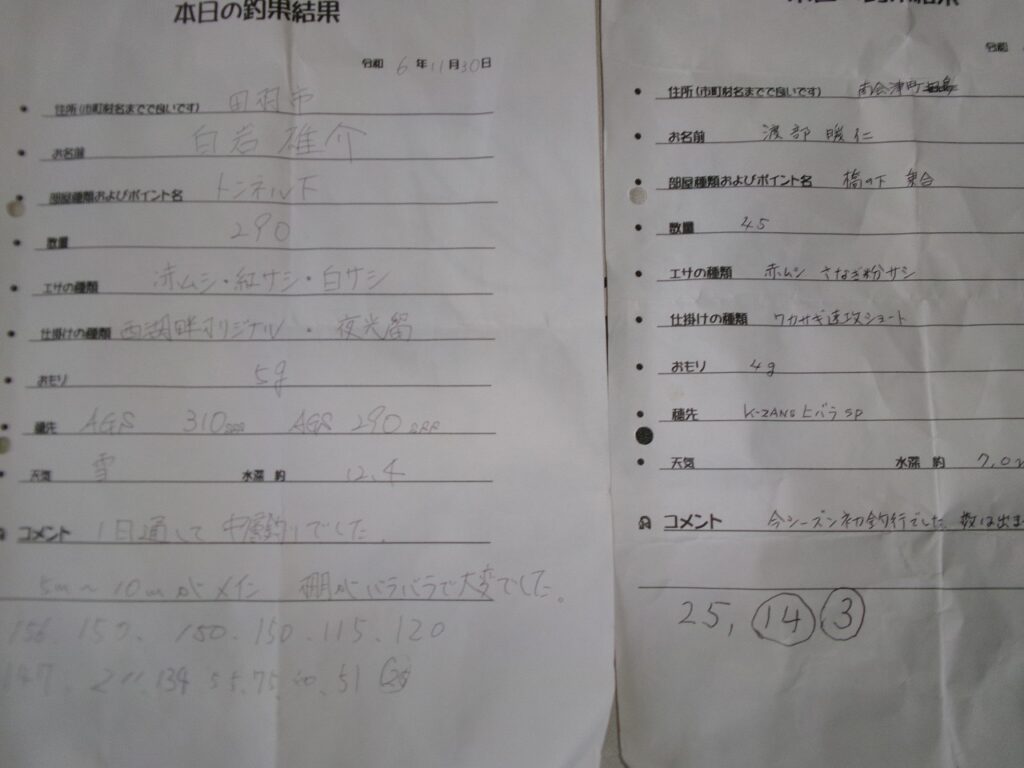 本日の釣果結果
令和 6年11月30日
住所(市町村名までで良いです) 田羽市
お名前 白岩 雄介
部屋種類およびポイント名 トンネル下
数量 290
エサの種類 赤ムシ・紅サシ・白サシ
仕掛けの種類 西湖畔オリジナル・夜光留
おもり 5g
穂先 AGS 310 AGS 290
天気 雪 水深 約 12.4
コメント 1日通して中層釣りでした。
5m~10mがメイン 棚がバラバラで大変でした。
156. 150. 150. 150. 115. 120
147. 211. 134 55. 75. 51
令和
住所(市町村名までで良いです) 南会津町
お名前 渡部 暖仁
部屋種類およびポイント名 橋の下 乗合
数量 45
エサの種類 赤ムシ さなぎ粉サシ
仕掛けの種類 ワカサギ速攻ショート
おもり 4g
穂先 K-ZANS ヒバラSP
天気 水深 約 7.0m
コメント 今シーズン初釣行でした 数は出ま
25, 14 3